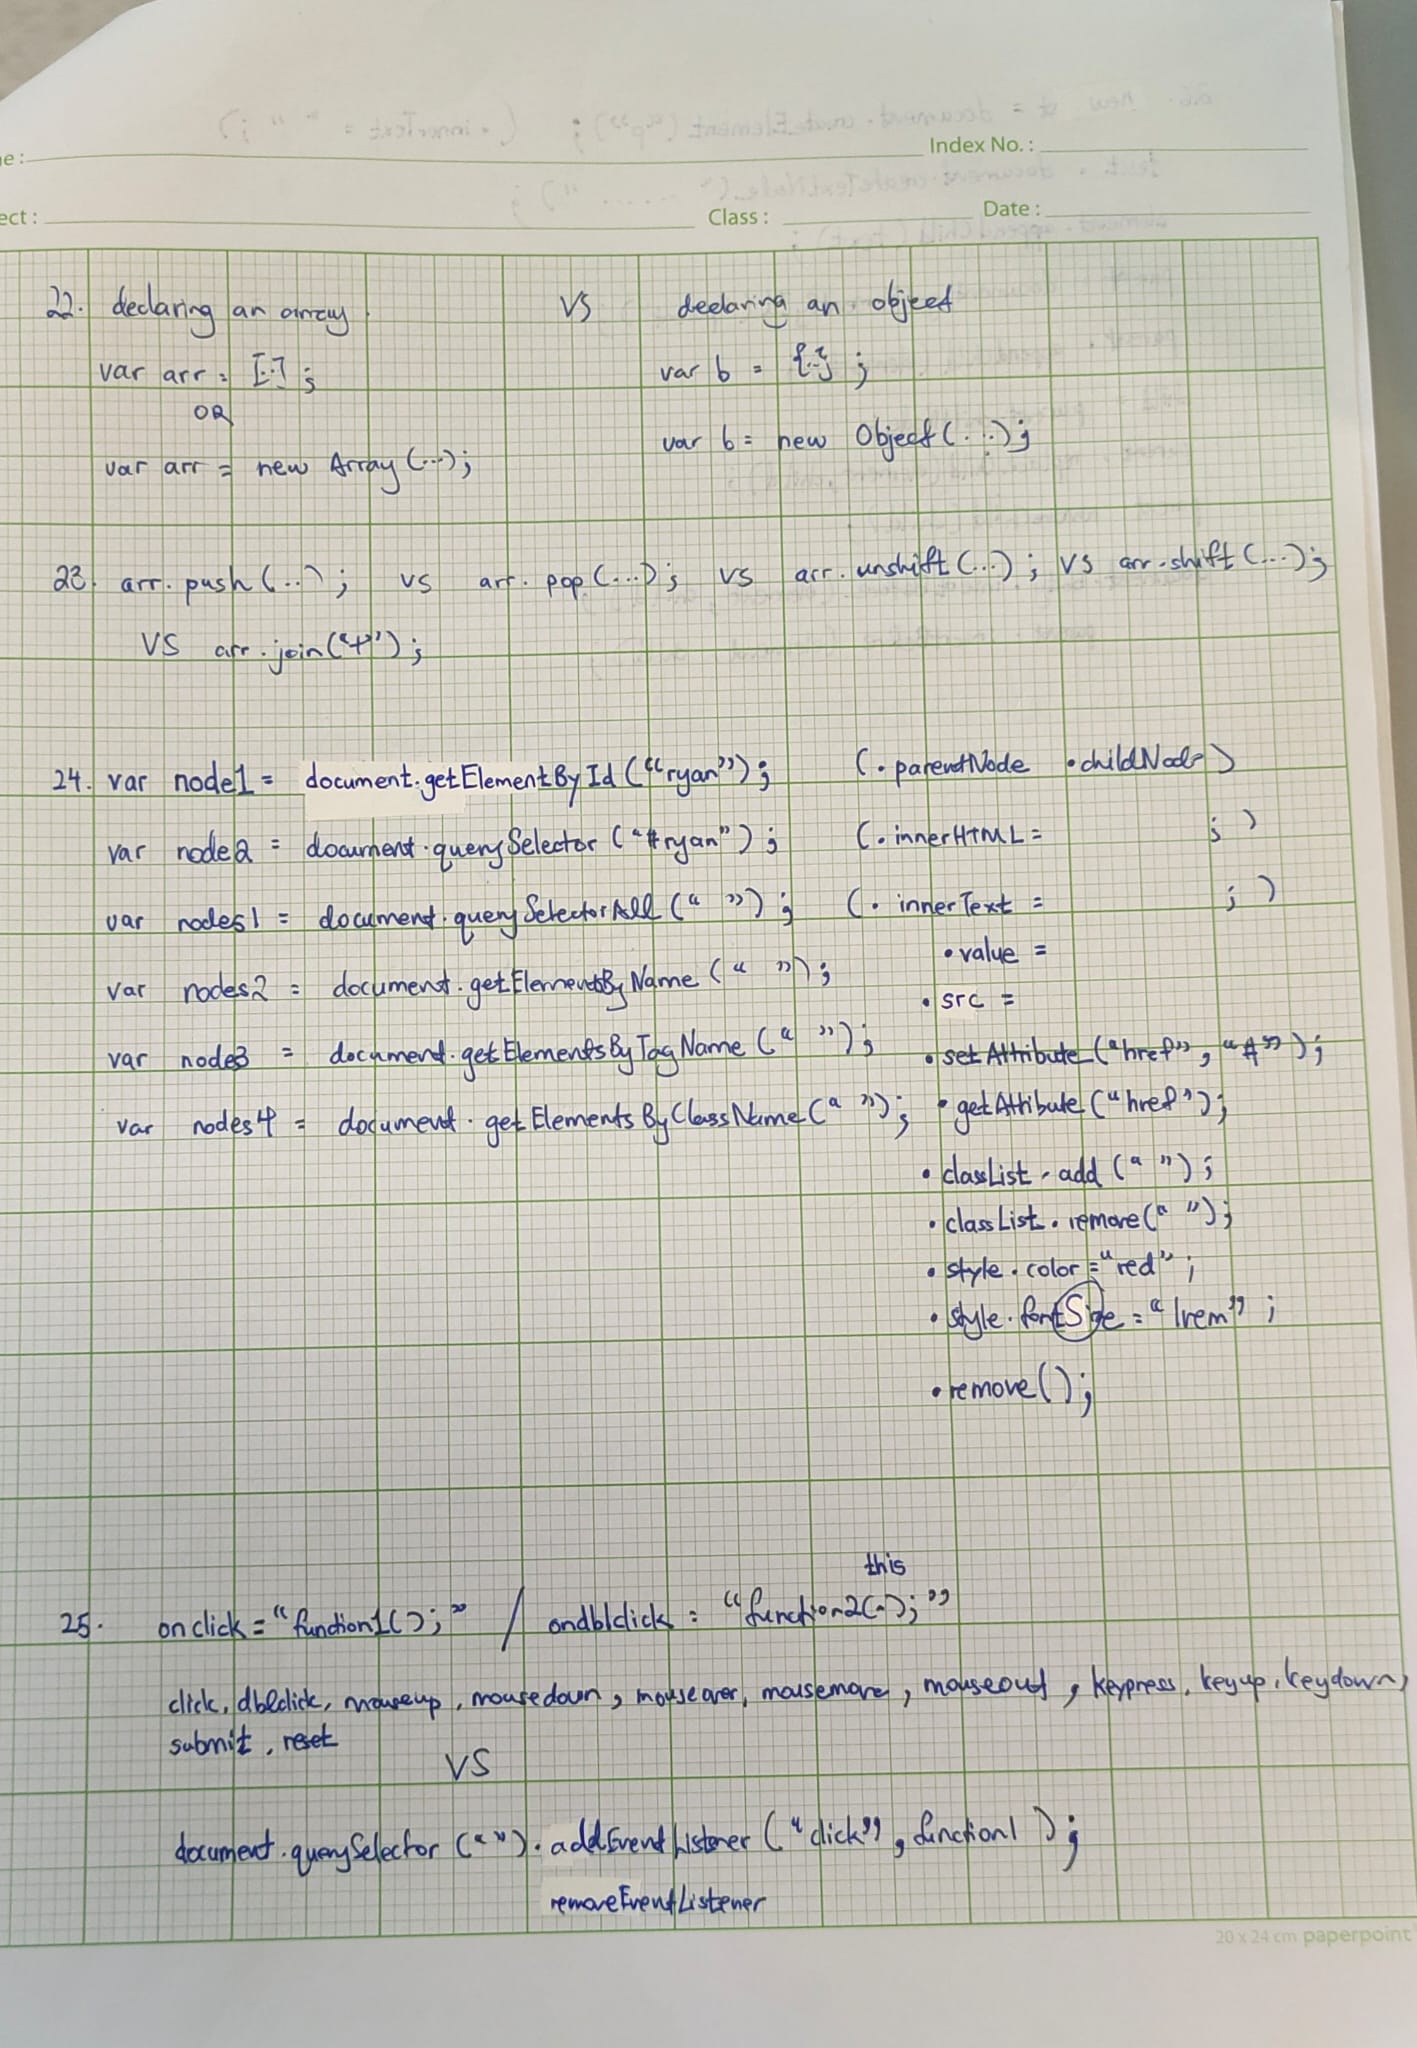 e :
Index No. :
ect :
Class :
Date :
22. declaring an array VS declaring an object
var arr = [..] ; var b = {..} ;
OR
var arr = new Array (...); var b = new Object (...);
23. arr.push (...) ; VS arr.pop (...); VS arr.unshift (...) ; VS arr.shift (...);
VS arr.join ("+") ;
24. var node1 = document.getElementById ("ryan") ; (.parentNode .childNode)
var node2 = document.querySelector ("#ryan") ; (.innerHTML = ; )
var nodes1 = document.querySelectorAll (" ") ; (.innerText = ; )
.value =
var nodes2 = document.getElementsByName (" ") ;
.src =
var node3 = document.getElementsByTagName (" ") ; .setAttribute ("href", "#") ;
var nodes4 = document.getElementsByClassName (" ") ; .getAttribute ("href") ;
.classList.add (" ") ;
.classList.remove (" ") ;
.style.color = "red" ;
.style.fontSize = "1rem" ;
.remove() ;
this
25. onclick = "function1() ; " / ondblclick = "function2(-) ; "
click, dblclick, mouseup, mousedown, mouseover, mousemove, mouseout, keypress, keyup, keydown,
submit, reset
VS
document.querySelector (" ") . addEventListener ("click", function1 ) ;
removeEventListener
20 x 24 cm paperpoint